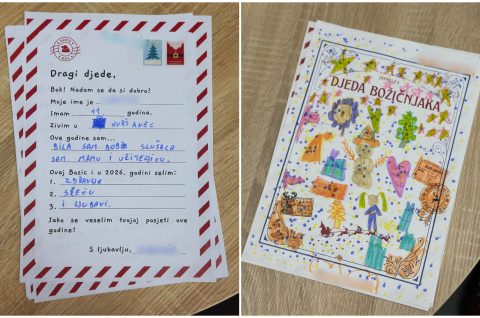 Dragi djede,
Bok! Nadam se da si dobro!
Moje ime je
Imam 11 godina.
Živim u KURŠANEC
Ove godine sam...
BILA SAM DOBRO SLUŠALA
SAM MAMU I UČITELJICU.
Ovaj Božić i u 2026. godini želim!
1. ZDRAVLJE
2. SREĆU
3. I LJUBAVI.
Jako se veselim tvojoj posjeti ove
godine!
S ljubavlju,
DJEDA BOŽIĆNJAKA